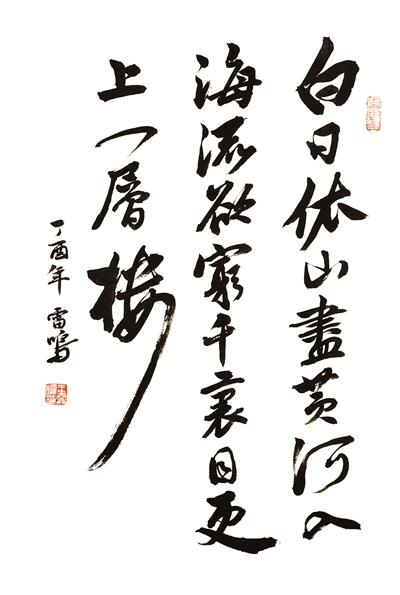 白日依山盡黄河入
海流欲窮千裏目更
上一層樓
丁酉年 雷鳴